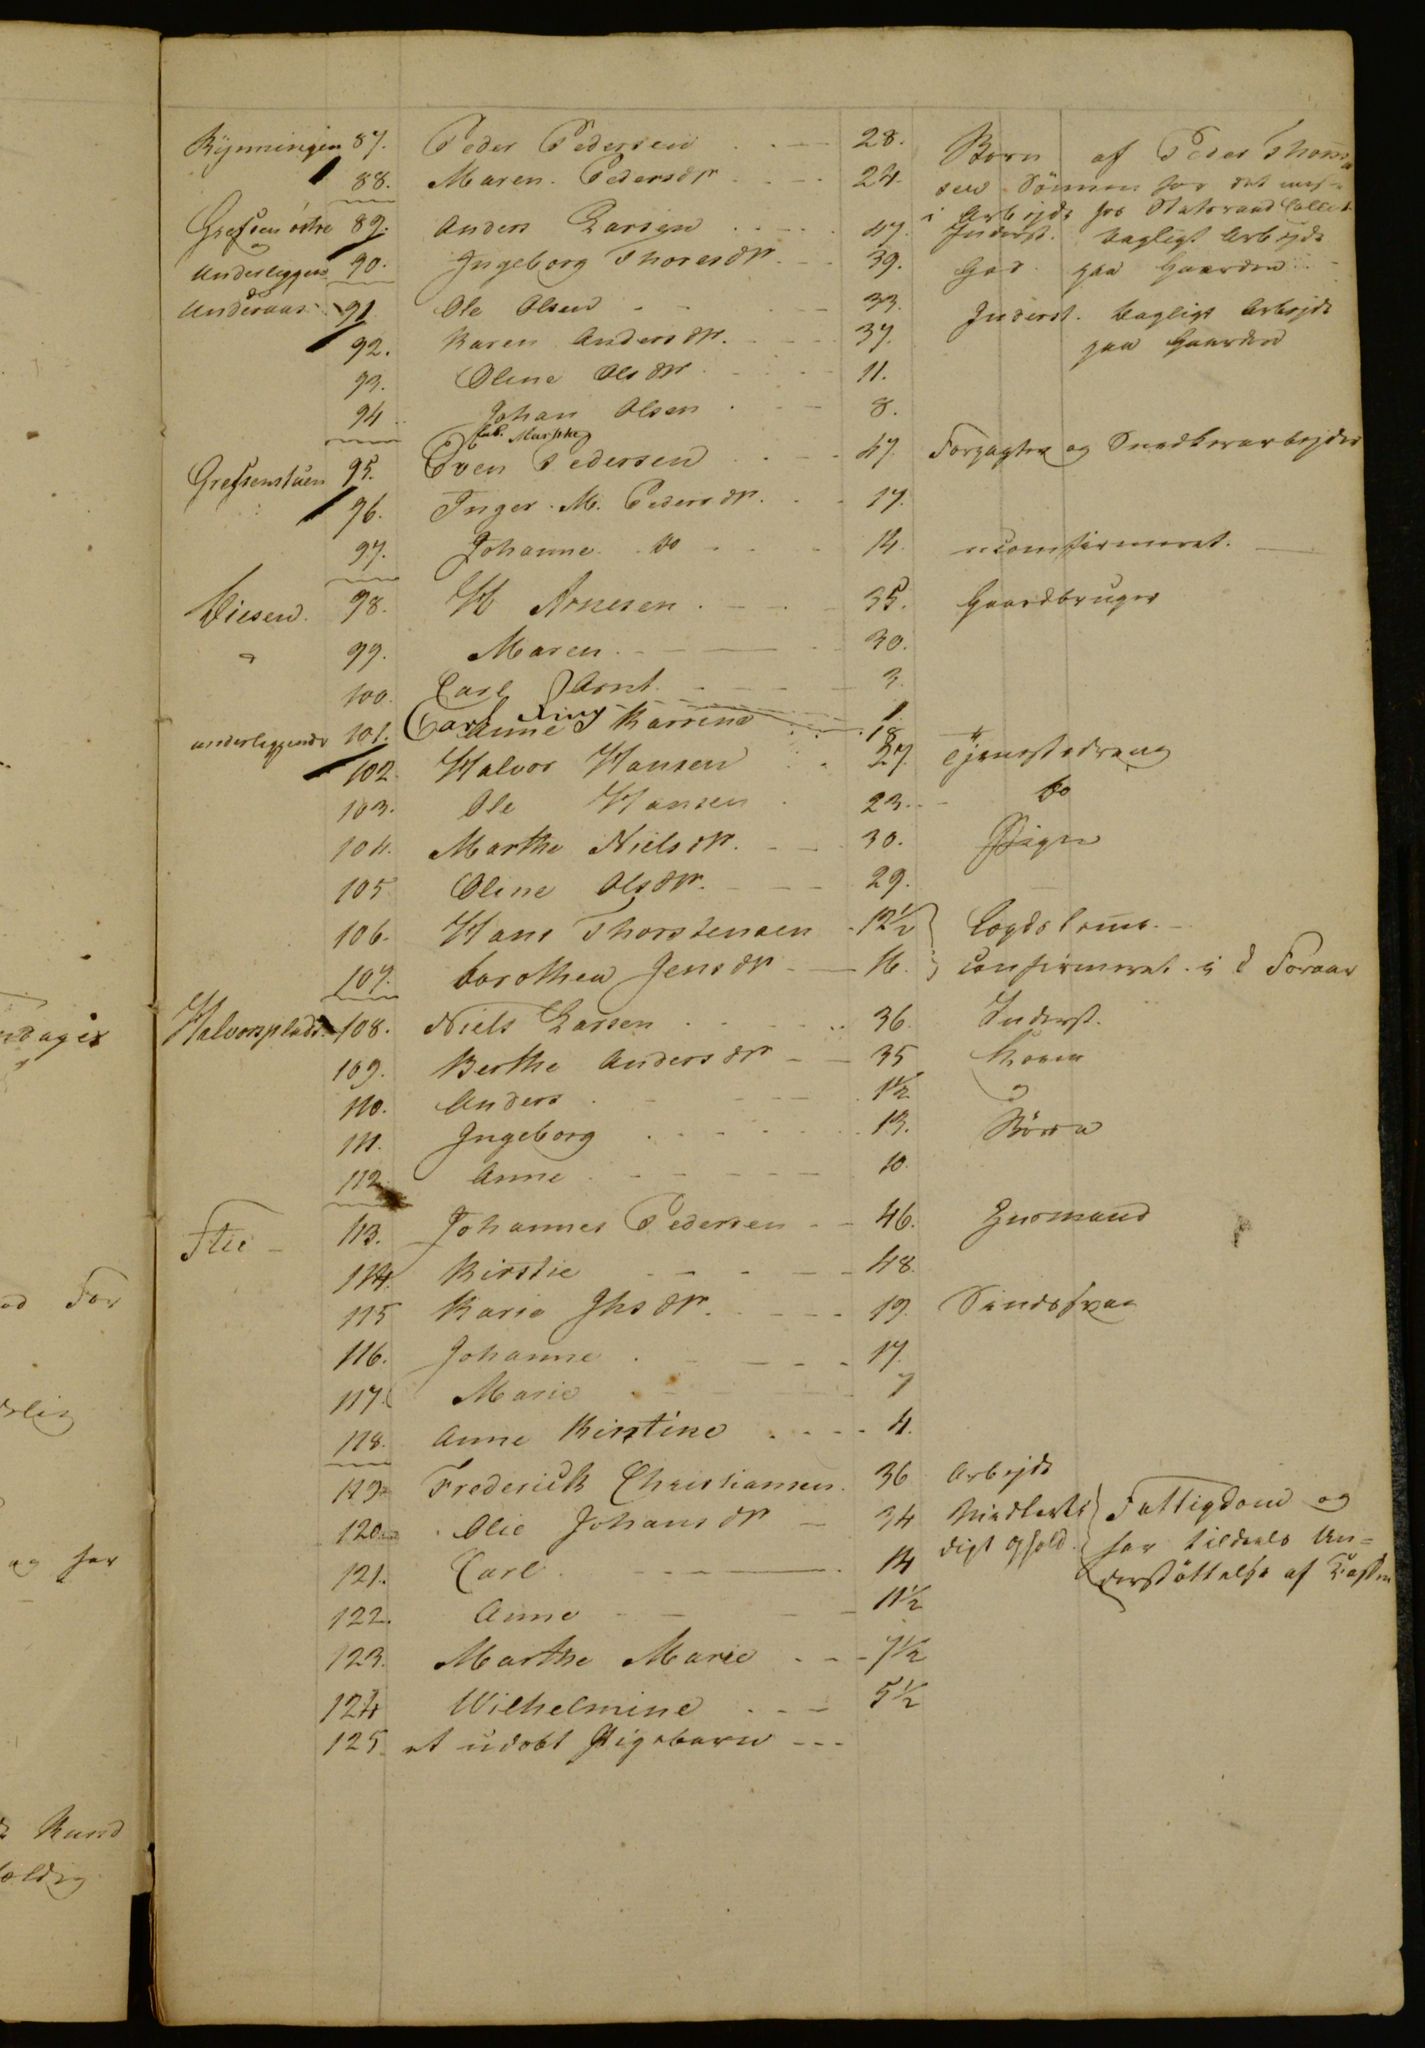 Rynningen 87. Peder Pedersen 28. Børn af Peder Thoma
88. Maren Pedersdr 24. sen Sønnen har det meste
i Arbejde hos Statsraad Collet
Grefsen østre 89. Anders Larsen 47. Inderst. Dagligt Arbejde
og
Underliggende 90. Ingeborg Thoresdr. 39. paa Gaarden
91. Ole Olsen 33. Inderst. Dagligt Arbejde
92. Karen Andersdr. 37. paa Gaarden
93. Oline Olsdr 11.
94. Johan Olsen 8.
Grefsenstuen 95. Even Pedersen 47. Forpagter og Snedkerarbejder
96. Inger M. Pedersdr. 17.
97. Johanne do 14. uconfirmeret.
Diesen. 98. H Arnesen 35. Gaardbruger
99. Maren 30.
100. Carl Arnt 3.
101. Anne Karrine 1
underliggende Carl 18
102. Halvor Hansen 27. Tjenestedreng
103. Ole Hansen 23. do
104. Marthe Nielsdr. 30. Pigen
105 Oline Olsdr. 29.
106. Hans Thorstensen 12½ Lægdslem.
107. Dorothea Jensdr 16. confirmeret i d Foraar
Halvorsplads 108. Niels Larsen 36. Inderst.
109. Berthe Andersdr 35 Kone
110. Anders 1½ og
111. Ingeborg 13. Børn
112 Anne 10.
113. Johannes Pedersen 46. Huusmand
114. Kirstie 48.
115 Karie Jhsdr. 19. Sindssvag
116. Johanne 17.
117. Marie 7
118. Anne Kirstine 4.
119. Frederick Christiansen 36 Arbejds
120. Olie Johansdr 34 Fattigdom og
121. Carl 14 digt Ophold. har tildeels Un=
derstøttelse af Kassen
122. Anne 11½
123. Marthe Marie 7½
124 Wilhelmine 5½
125. et udøbt Pigebarn